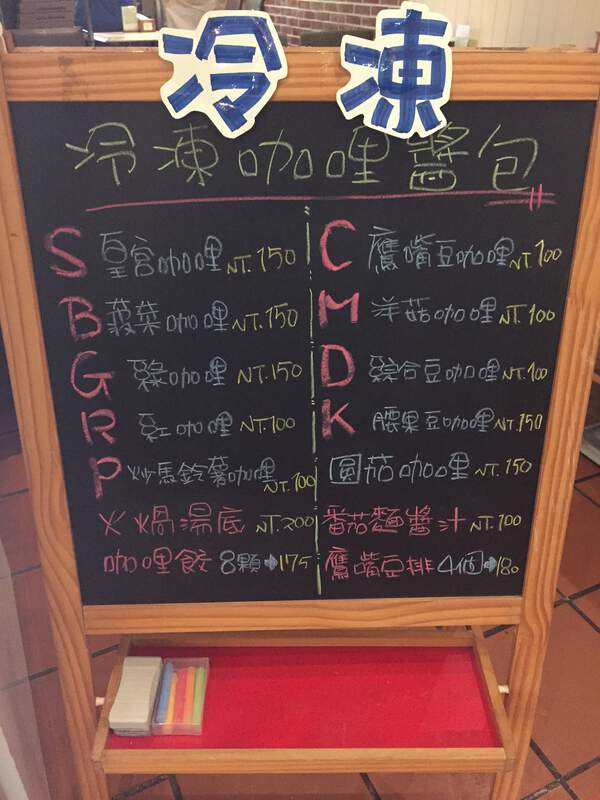 冷凍
冷凍咖哩醬包
S 皇宮咖哩 NT.150
B 菠菜咖哩 NT.150
G 綠咖哩 NT.150
R 紅咖哩 NT.100
P 炒馬鈴薯咖哩 NT.100
火焗湯底 NT.200
咖哩餃 8顆→175
C 鷹嘴豆咖哩 NT.100
M 洋菇咖哩 NT.100
D 綜合豆咖哩 NT.100
K 腰果豆咖哩 NT.150
圓茄咖哩 NT.150
番茄麵醬汁 NT.100
鷹嘴豆排 4個→180